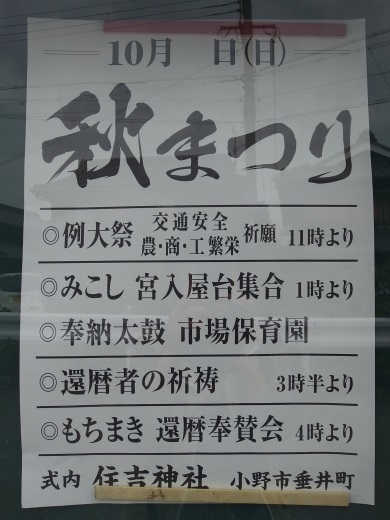 10月 日(日)
秋まつり
◎例大祭 交通安全 農・商・工繁栄 祈願 11時より
◎みこし 宮入屋台集合 1時より
◎奉納太鼓 市場保育園
◎還暦者の祈祷 3時半より
◎もちまき 還暦奉賛会 4時より
式内 住吉神社 小野市垂井町